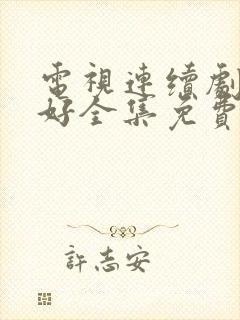 電視連續劇
好全集免費
許志安